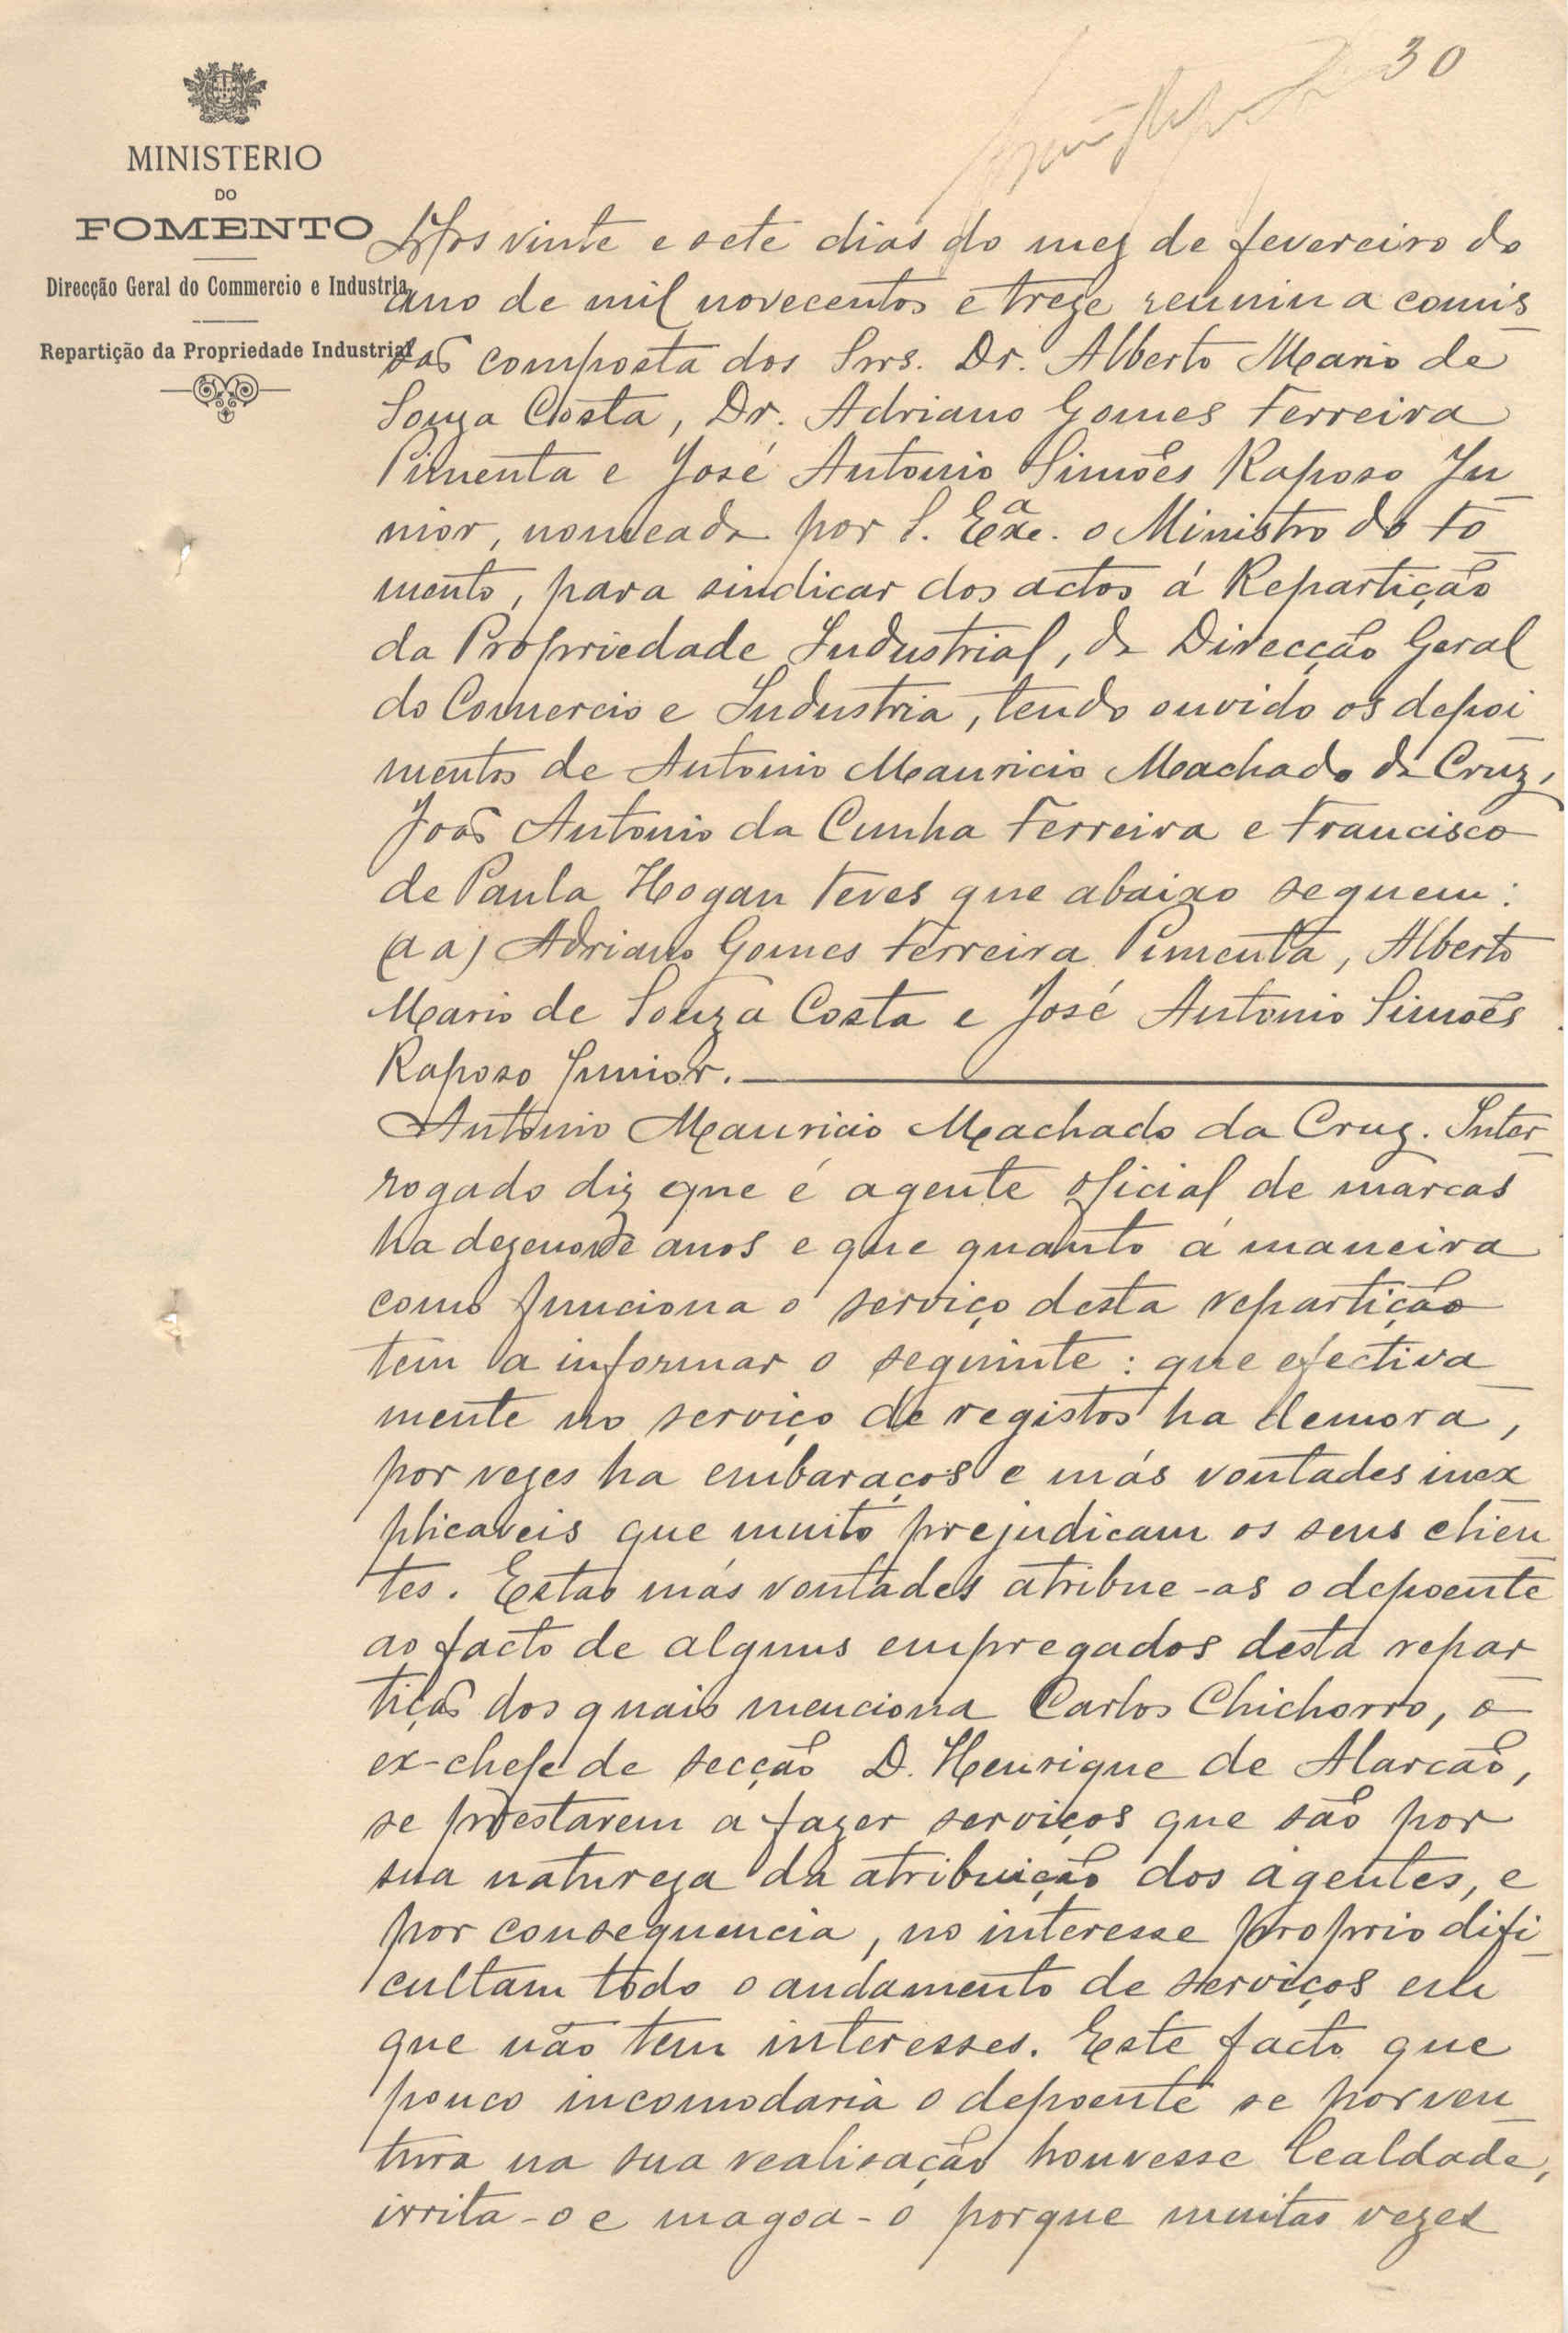 30
MINISTERIO
DO
FOMENTO
Direcção Geral do Commercio e Industria
Repartição da Propriedade Industrial
Aos vinte e sete dias do mez de fevereiro do
ano de mil novecentos e treze reuniu a comis-
são composta dos Snrs. Dr. Alberto Mario de
Souza Costa, Dr. Adriano Gomes Ferreira
Pimenta e José Antonio Simões Raposo Ju-
nior, nomeada por S. Exª. o Ministro do Fo-
mento, para sindicar dos actos á Repartição
da Propriedade Industrial, da Direcção Geral
do Comercio e Industria, tendo ouvido os depoi-
mentos de Antonio Mauricio Machado da Cruz,
João Antonio da Cunha Ferreira e Francisco
de Paula Hogan Teves que abaixo seguem:
(a a) Adriano Gomes Ferreira Pimenta, Alberto
Mario de Souza Costa e José Antonio Simões
Raposo Junior.
Antonio Mauricio Machado da Cruz. Inter-
rogado diz que é agente oficial de marcas
ha dezenove anos e que quanto á maneira
como funciona o serviço desta repartição
tem a informar o seguinte: que efectiva-
mente no serviço de registos ha demora,
por vezes ha embaraços e más vontades inex-
plicaveis que muito prejudicam os seus clien-
tes. Estas más vontades atribue-as o depoente
ao facto de alguns empregados desta repar-
tição dos quais menciona Carlos Chichorro, o
ex-chefe de secção D. Henrique de Alarcão,
se prestarem a fazer serviços que são por
sua natureza da atribuição dos agentes, e
por consequencia, no interesse proprio difi-
cultam todo o andamento de serviços em
que não tem interesses. Este facto que
pouco incomodaria o depoente se porven-
tura na sua realisação houvesse lealdade,
irrita-o e magoa-o porque muitas vezes